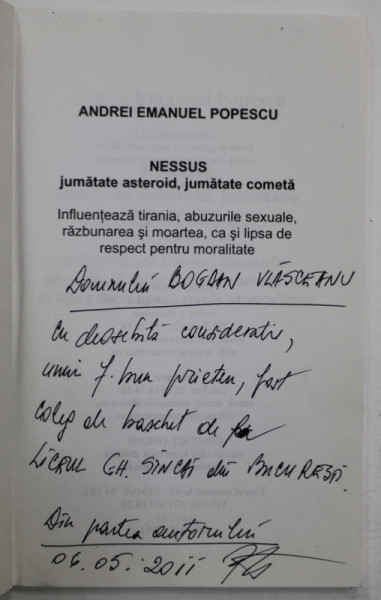 ANDREI EMANUEL POPESCU
NESSUS
jumătate asteroid, jumătate cometă
Influenţează tirania, abuzurile sexuale,
răzbunarea şi moartea, ca şi lipsa de
respect pentru moralitate
Domnului BOGDAN VLĂSCEANU
cu deosebită considerație,
unui f. bun prieten, fost
coleg de baschet de la
LICEUL GH. ŞINCAI din BUCUREŞTI.
Din partea autorului
06.05.2011